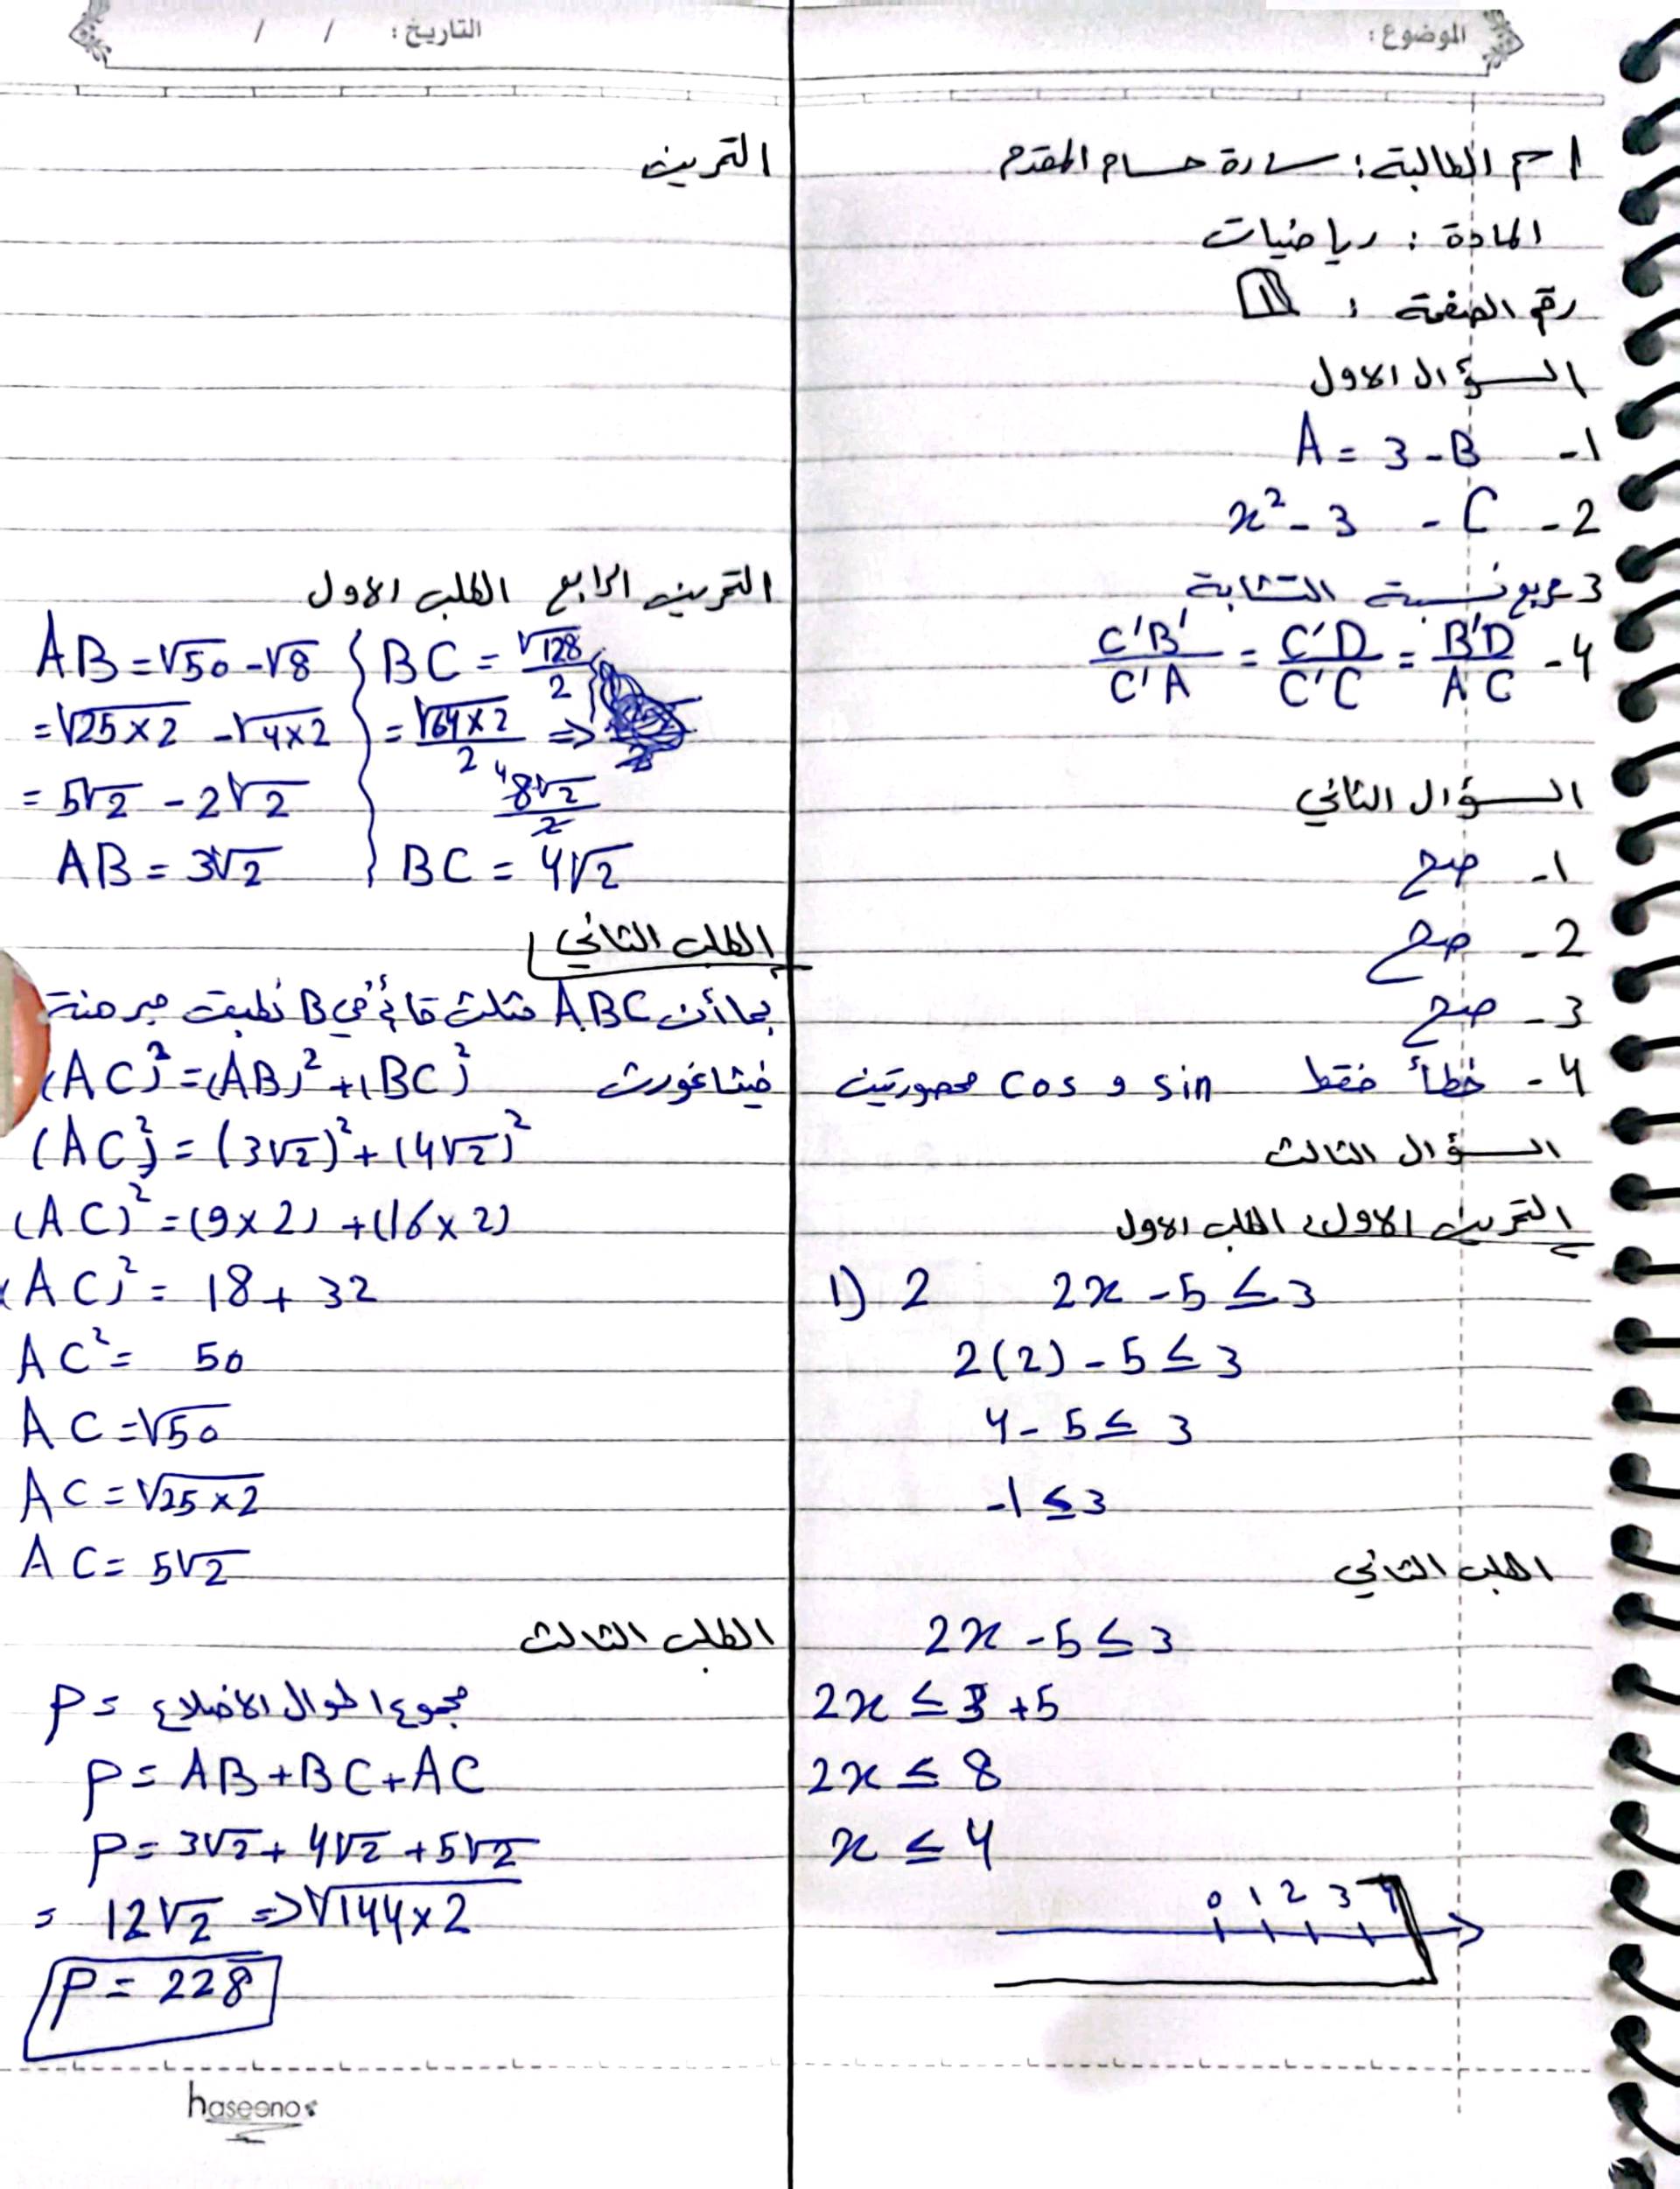 الموضوع:
التاريخ: / /
اسم الطالبة: سارة حسام المقدم
المادة: رياضيات
رقم الصفحة: 1
السؤال الاول
1- A = 3 - B
2- x² - 3 - C
3- مربع نسبة التشابة
4- C'B'/C'A = C'D/C'C = B'D/AC
السؤال الثاني
1- صح
2- صح
3- صح
4- خطأ فقط sin و cos محصورتين
السؤال الثالث
التمرين الاول: الطلب الاول
1) 2 2x - 5 ≤ 3
2(2) - 5 ≤ 3
4 - 5 ≤ 3
-1 ≤ 3
الطلب الثاني
2x - 5 ≤ 3
2x ≤ 3 + 5
2x ≤ 8
x ≤ 4
0 1 2 3 4
التمرين
التمرين الرابع الطلب الاول
AB = √50 - √8 } BC = √128/2
= √25×2 - √4×2 } = √64×2/2 ⇒
= 5√2 - 2√2 } 4 8√2/2
AB = 3√2 } BC = 4√2
الطلب الثاني
بما أن ABC مثلث قائم في B نطبق مبرهنة
فيثاغورث (AC)² = (AB)² + (BC)²
(AC)² = (3√2)² + (4√2)²
(AC)² = (9×2) + (16×2)
(AC)² = 18 + 32
AC² = 50
AC = √50
AC = √25×2
AC = 5√2
الطلب الثالث
P = مجموع اطوال الاضلاع
P = AB + BC + AC
P = 3√2 + 4√2 + 5√2
= 12√2 ⇒ √144×2
P = 228
haseeno